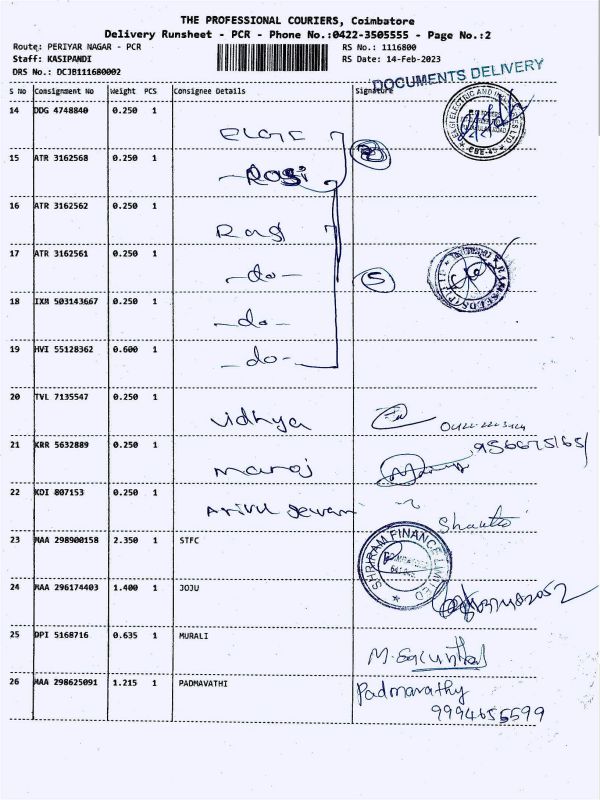 THE PROFESSIONAL COURIERS, Coimbatore
Delivery Runsheet - PCR - Phone No.:0422-3505555 - Page No.:2
Route: PERIYAR NAGAR - PCR
RS No.: 1116800
Staff: KASIPANDI
RS Date: 14-Feb-2023
DRS No.: DCJB111680002
DOCUMENTS DELIVERY
S No Consignment No Weight PCS Consignee Details Signature
14 DDG 4748840 0.250 1
15 ATR 3162568 0.250 1
16 ATR 3162562 0.250 1
17 ATR 3162561 0.250 1 -do-
5
18 IXM 503143667 0.250 1 -do-
19 HVI 55128362 0.600 1 -do-
20 TVL 7135547 0.250 1 Vidhya
21 KRR 5632889 0.250 1 Manoj
22 KDI 807153 0.250 1
23 MAA 298900158 2.350 1 STFC
SHRIRAM FINANCE LIMITED
24 MAA 296174403 1.400 1 JOJU
25 DPI 5168716 0.635 1 MURALI
26 MAA 298625091 1.215 1 PADMAVATHI Padmavathy
9994655599